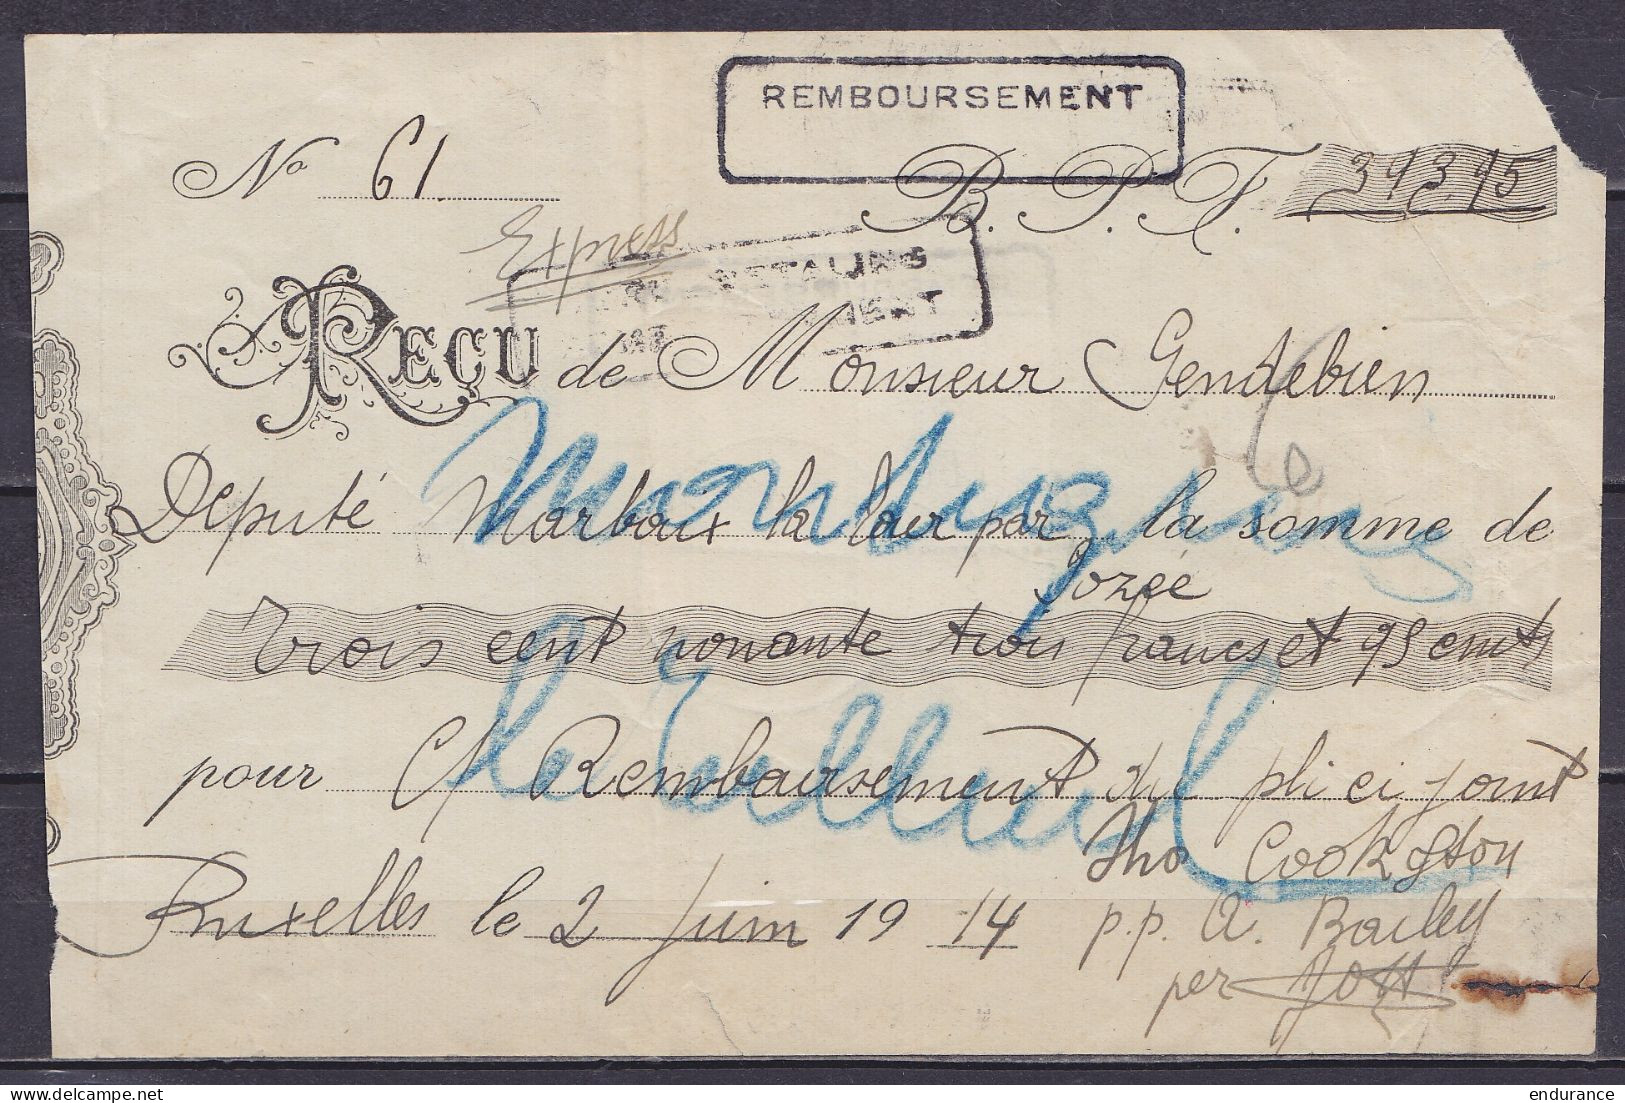 REMBOURSEMENT
No 61. B.P.F. 393,95
Express
TALING
MENT
Reçu de Monsieur Gendebien
Deputé Marbaix la Tour par la somme de
Gozée
trois cent nonante trois francs et 95 cents
pour c/ Remboursement du pli ci joint
Tho Cook & Son
Bruxelles le 2 Juin 1914 p.p. A. Bailey
per
endurance